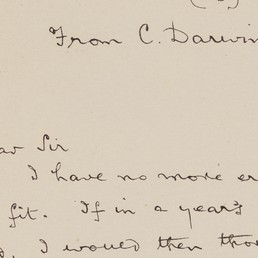 From C. Darwin
Sir
I have no more
fit. If in a year's
I would then